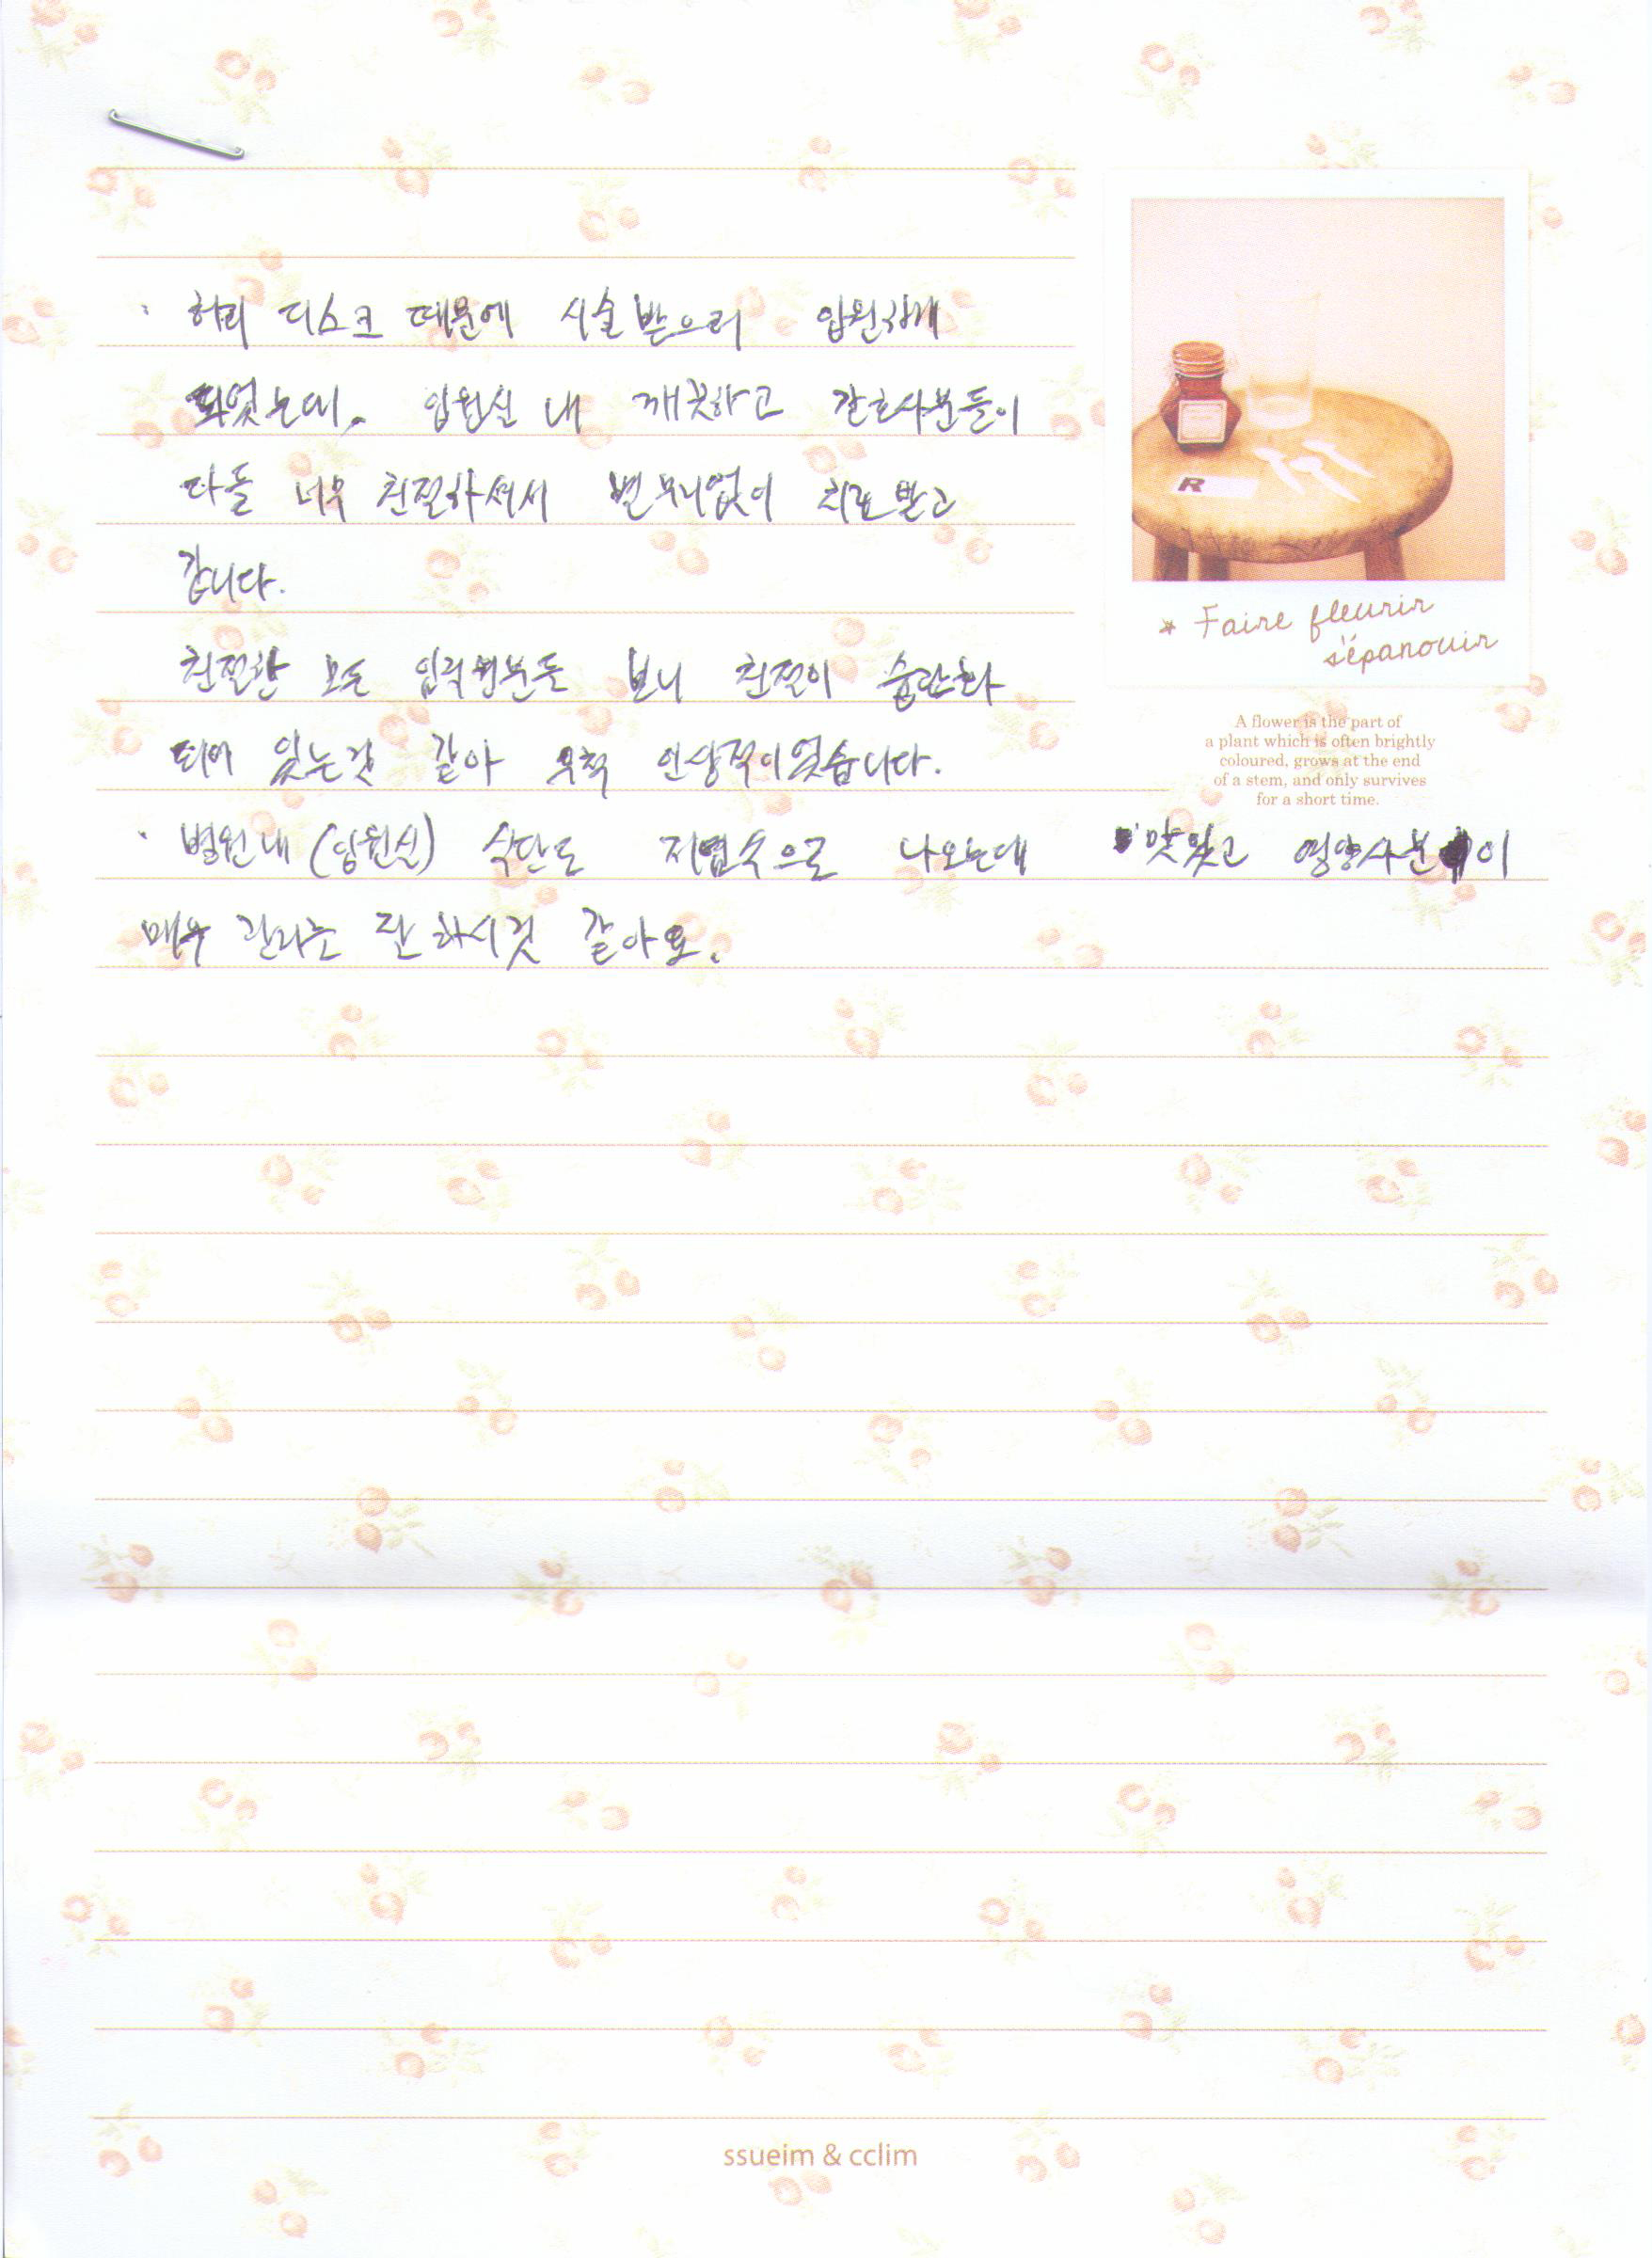 · 허리 디스크 때문에 시술받으러 입원하게
되었는데, 입원실 내 깨끗하고 간호사분들이
다들 너무 친절하셔서 별 무리없이 치료받고
갑니다.
친절한 모든 인력분들 보니 친절이 습관화
되어 있는것 같아 무척 인상적이었습니다.
· 병원내 (입원실) 식단도 저염수으로 나오는데 맛있고 영양사분이
매우 관리는 잘 하시것 같아요.
R
* Faire fleurir
s'épanouir
A flower is the part of
a plant which is often brightly
coloured, grows at the end
of a stem, and only survives
for a short time.
ssueim & cclim